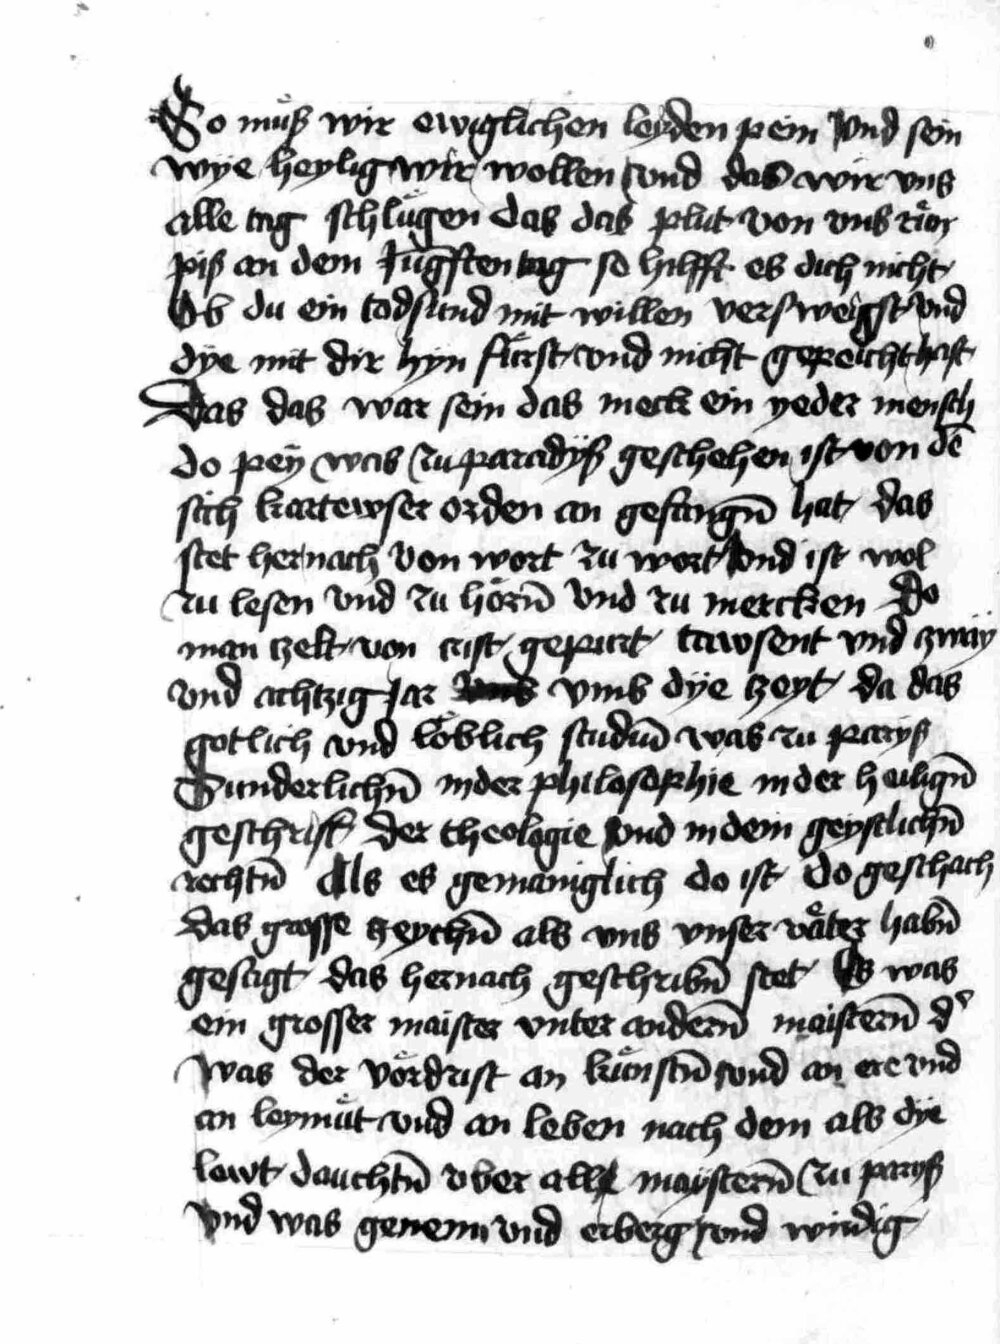 So muͤß wir ewiglichen leyden pein vnd sein
wye heylig wir wollen vnd das wir vns
alle tag schluͤgen das das plut von vns
piß an dem Jungsten tag so hilfft es dich nicht
Ob du ein todsund mit willen versweigst vnd
dye mit dir hyn fuͤrst vnd nicht gepeicht hast
Das das war sein das merck ein yeder mensch
do pey was zu paradyß geschehen ist von dē
sich kartewser orden an gefangn̄ hat das
stet hernach von wort zu wort vnd ist wol
zu lesen vnd zu hoͤrn̄ vnd zu mercken Do
man tzelt von crist gepurt tawsent vnd zway
vnd achtzig Jar vmb dye tzeyt da das
gotlich vnd loͤblich studiū was zu paryß
Sunderlichn̄ in der philosophie in der heilign̄
geschrift der theologie vnd in dem geystlichn̄
rechtn̄ Als es gemainiglich do ist do geschach
das grosse zeychn̄ als vns vnser vaͤter habn̄
gesagt das hernach geschribn̄ stet Es was
ein grosser maister vnter andern̄ maistern̄ d'
was der voͤrdrist an kuͤnstn̄ vnd an ere vnd
an leymuͤt vnd an leben nach dem als dye
lewt dauchtn̄ vber all maystern̄ zu paryß
vnd was genem vnd erberg vnd wirdig